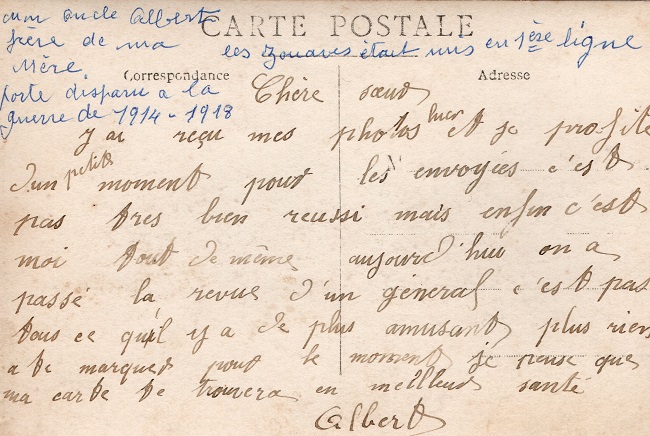 mon oncle Albert
frère de ma
mère.
porte disparu a la
guerre de 1914-1918
CARTE POSTALE
les zouaves était mis en 1ère ligne
Correspondance
Adresse
Chère sœur
J ai reçu mes photos hier et je profite
d'un petit moment pour les envoyies c'est
pas tres bien reussi mais enfin c'est
moi tout de même aujourd'hui on a
passé la revue d'un general c'est pas
tous ce qu'il y a de plus amusant plus rien
a te marquer pour le moment je pense que
ma carte te trouvera en meilleur santé
Albert